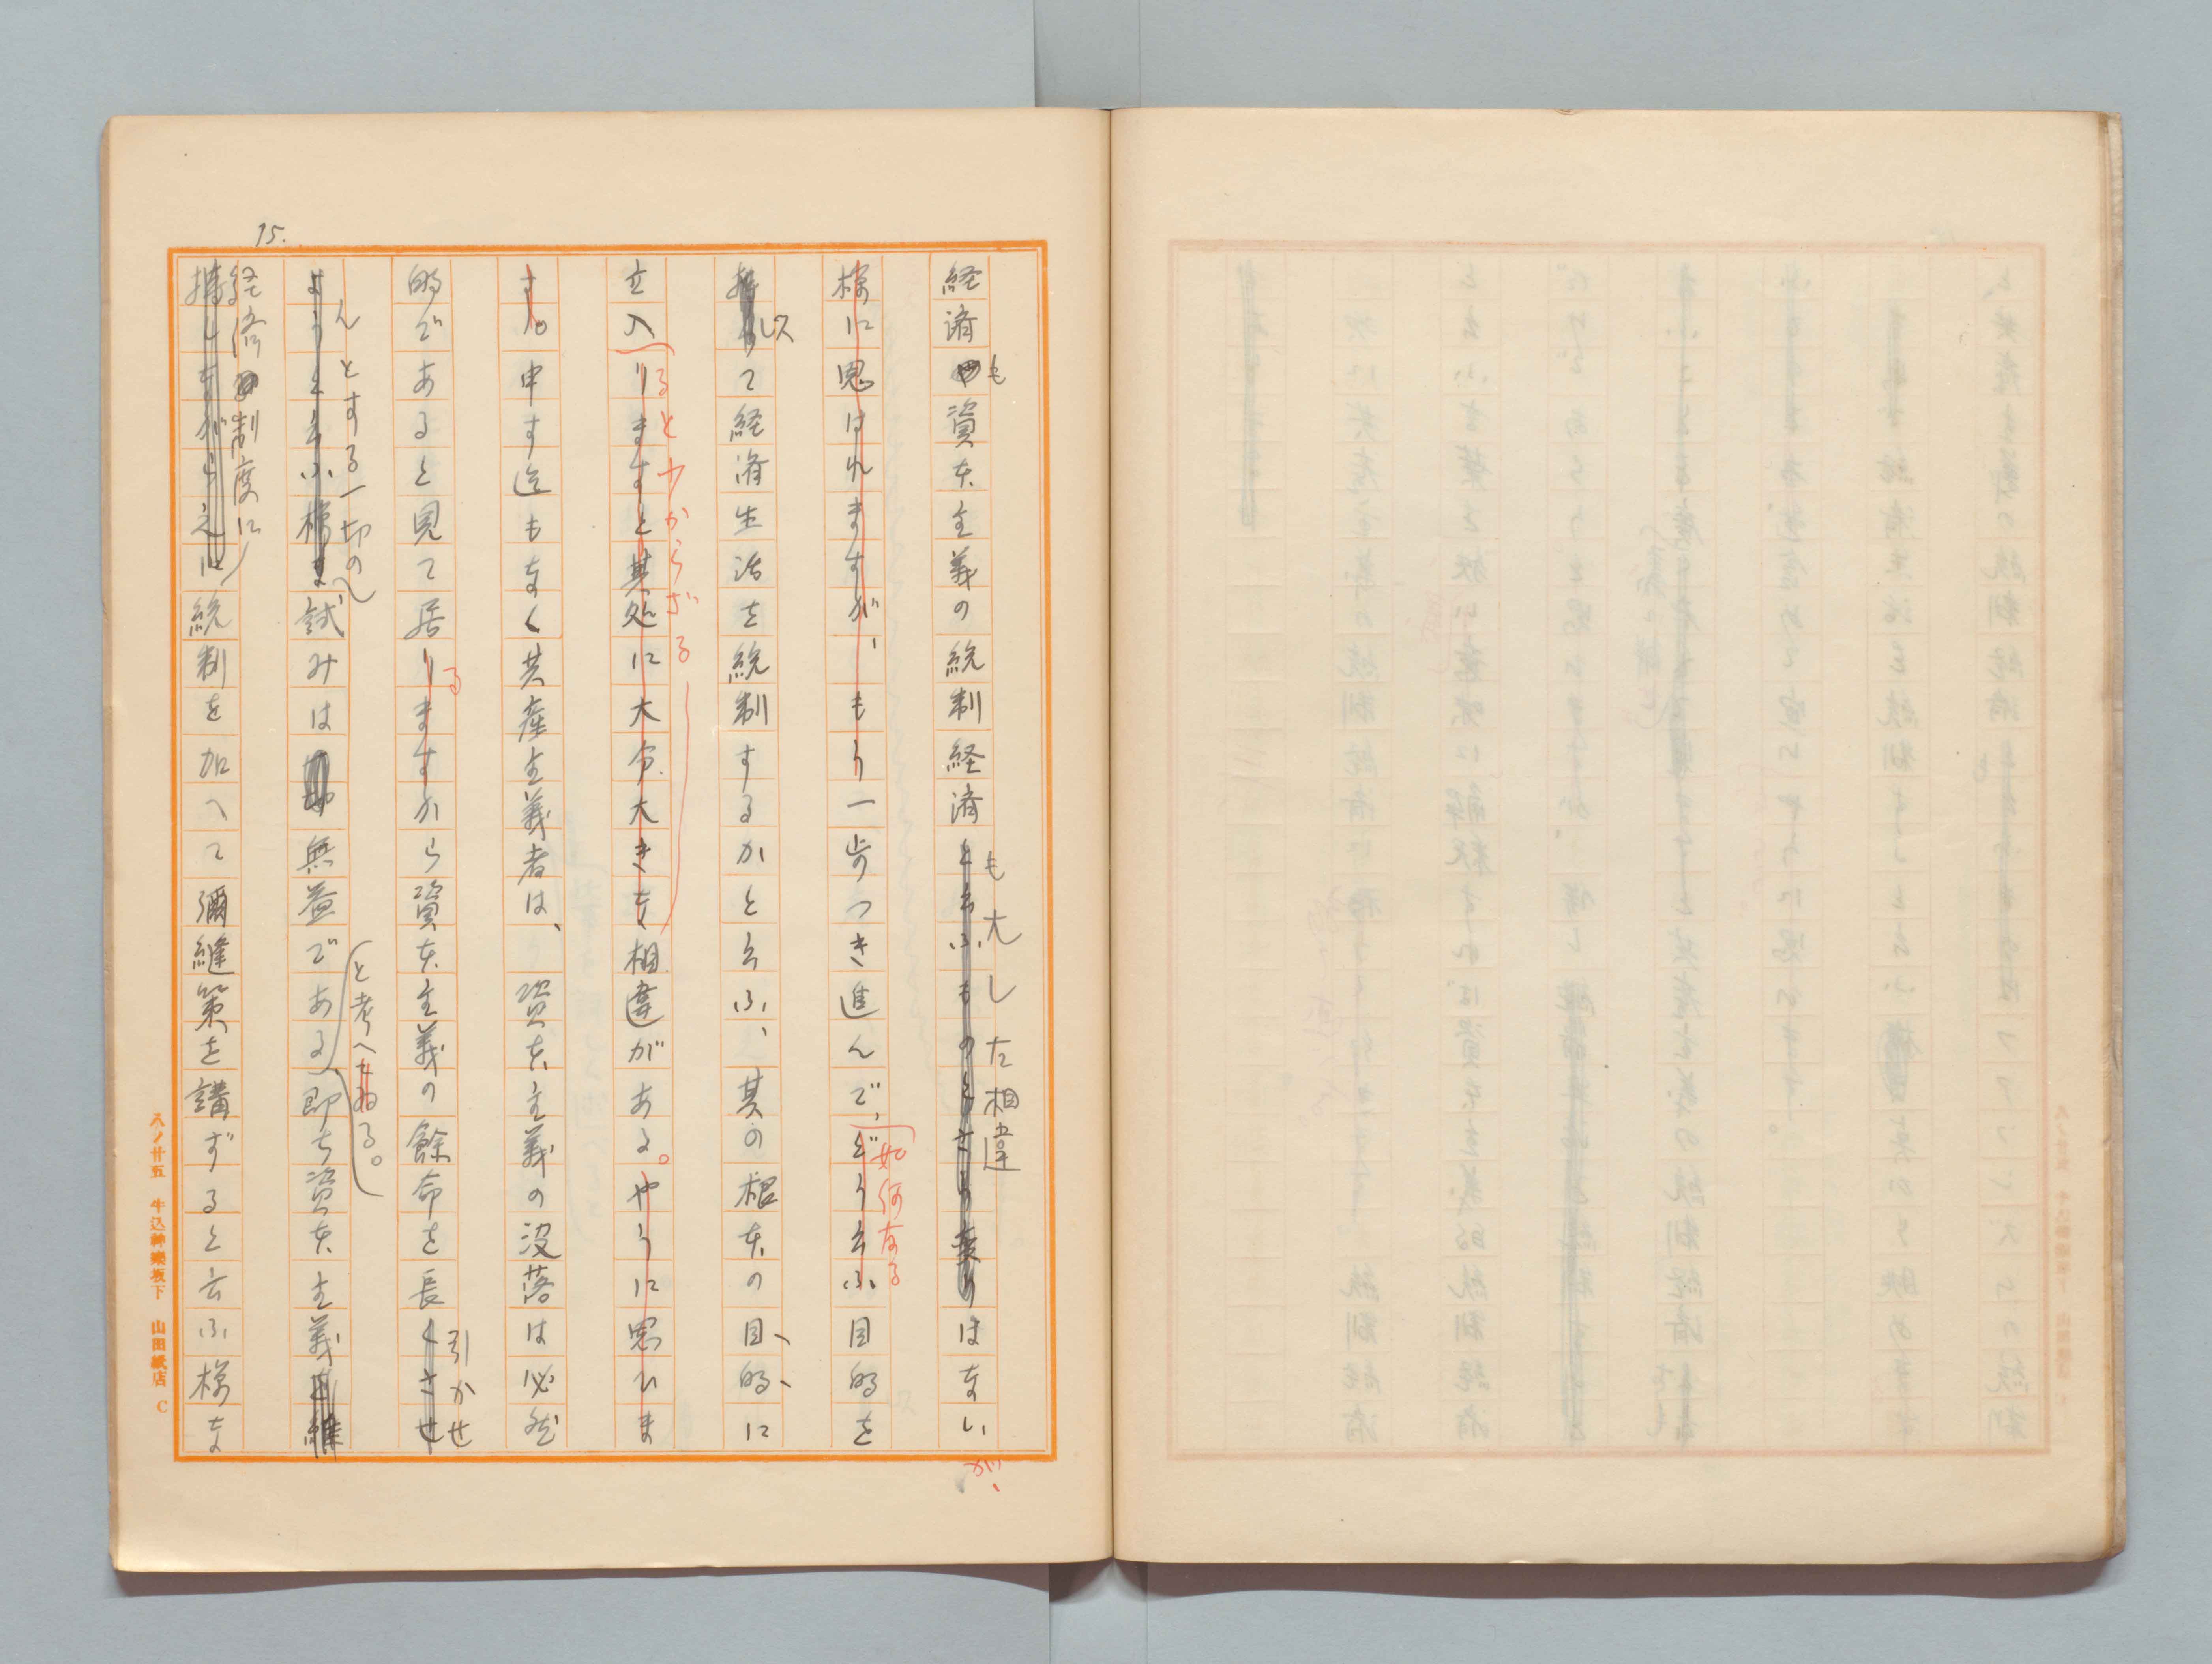 15.
経済も資本主義の統制経済も大した相違はないが、
様に思はれますが、もう一歩つき進んで、如何なるどう云ふ目的を
以て経済生活を統制するかと云ふ、其の根本の目的に
立入るとりますと其処に大分大きな相違がある。やうに思ひま
少からざる
す。申す迄もなく共産主義者は、資本主義の没落は必然
的であると見て居るりますから資本主義の餘命を長くさせ
引かせ
んとする一切の
ようと云ふ様な試みは無益である、即ち資本主義維
と考へてゐる。
経済制度に
持しながら之に統制を加へて彌縫策を講ずると云ふ様な
八ノ廿五 牛込神楽坂下 山田紙店 C